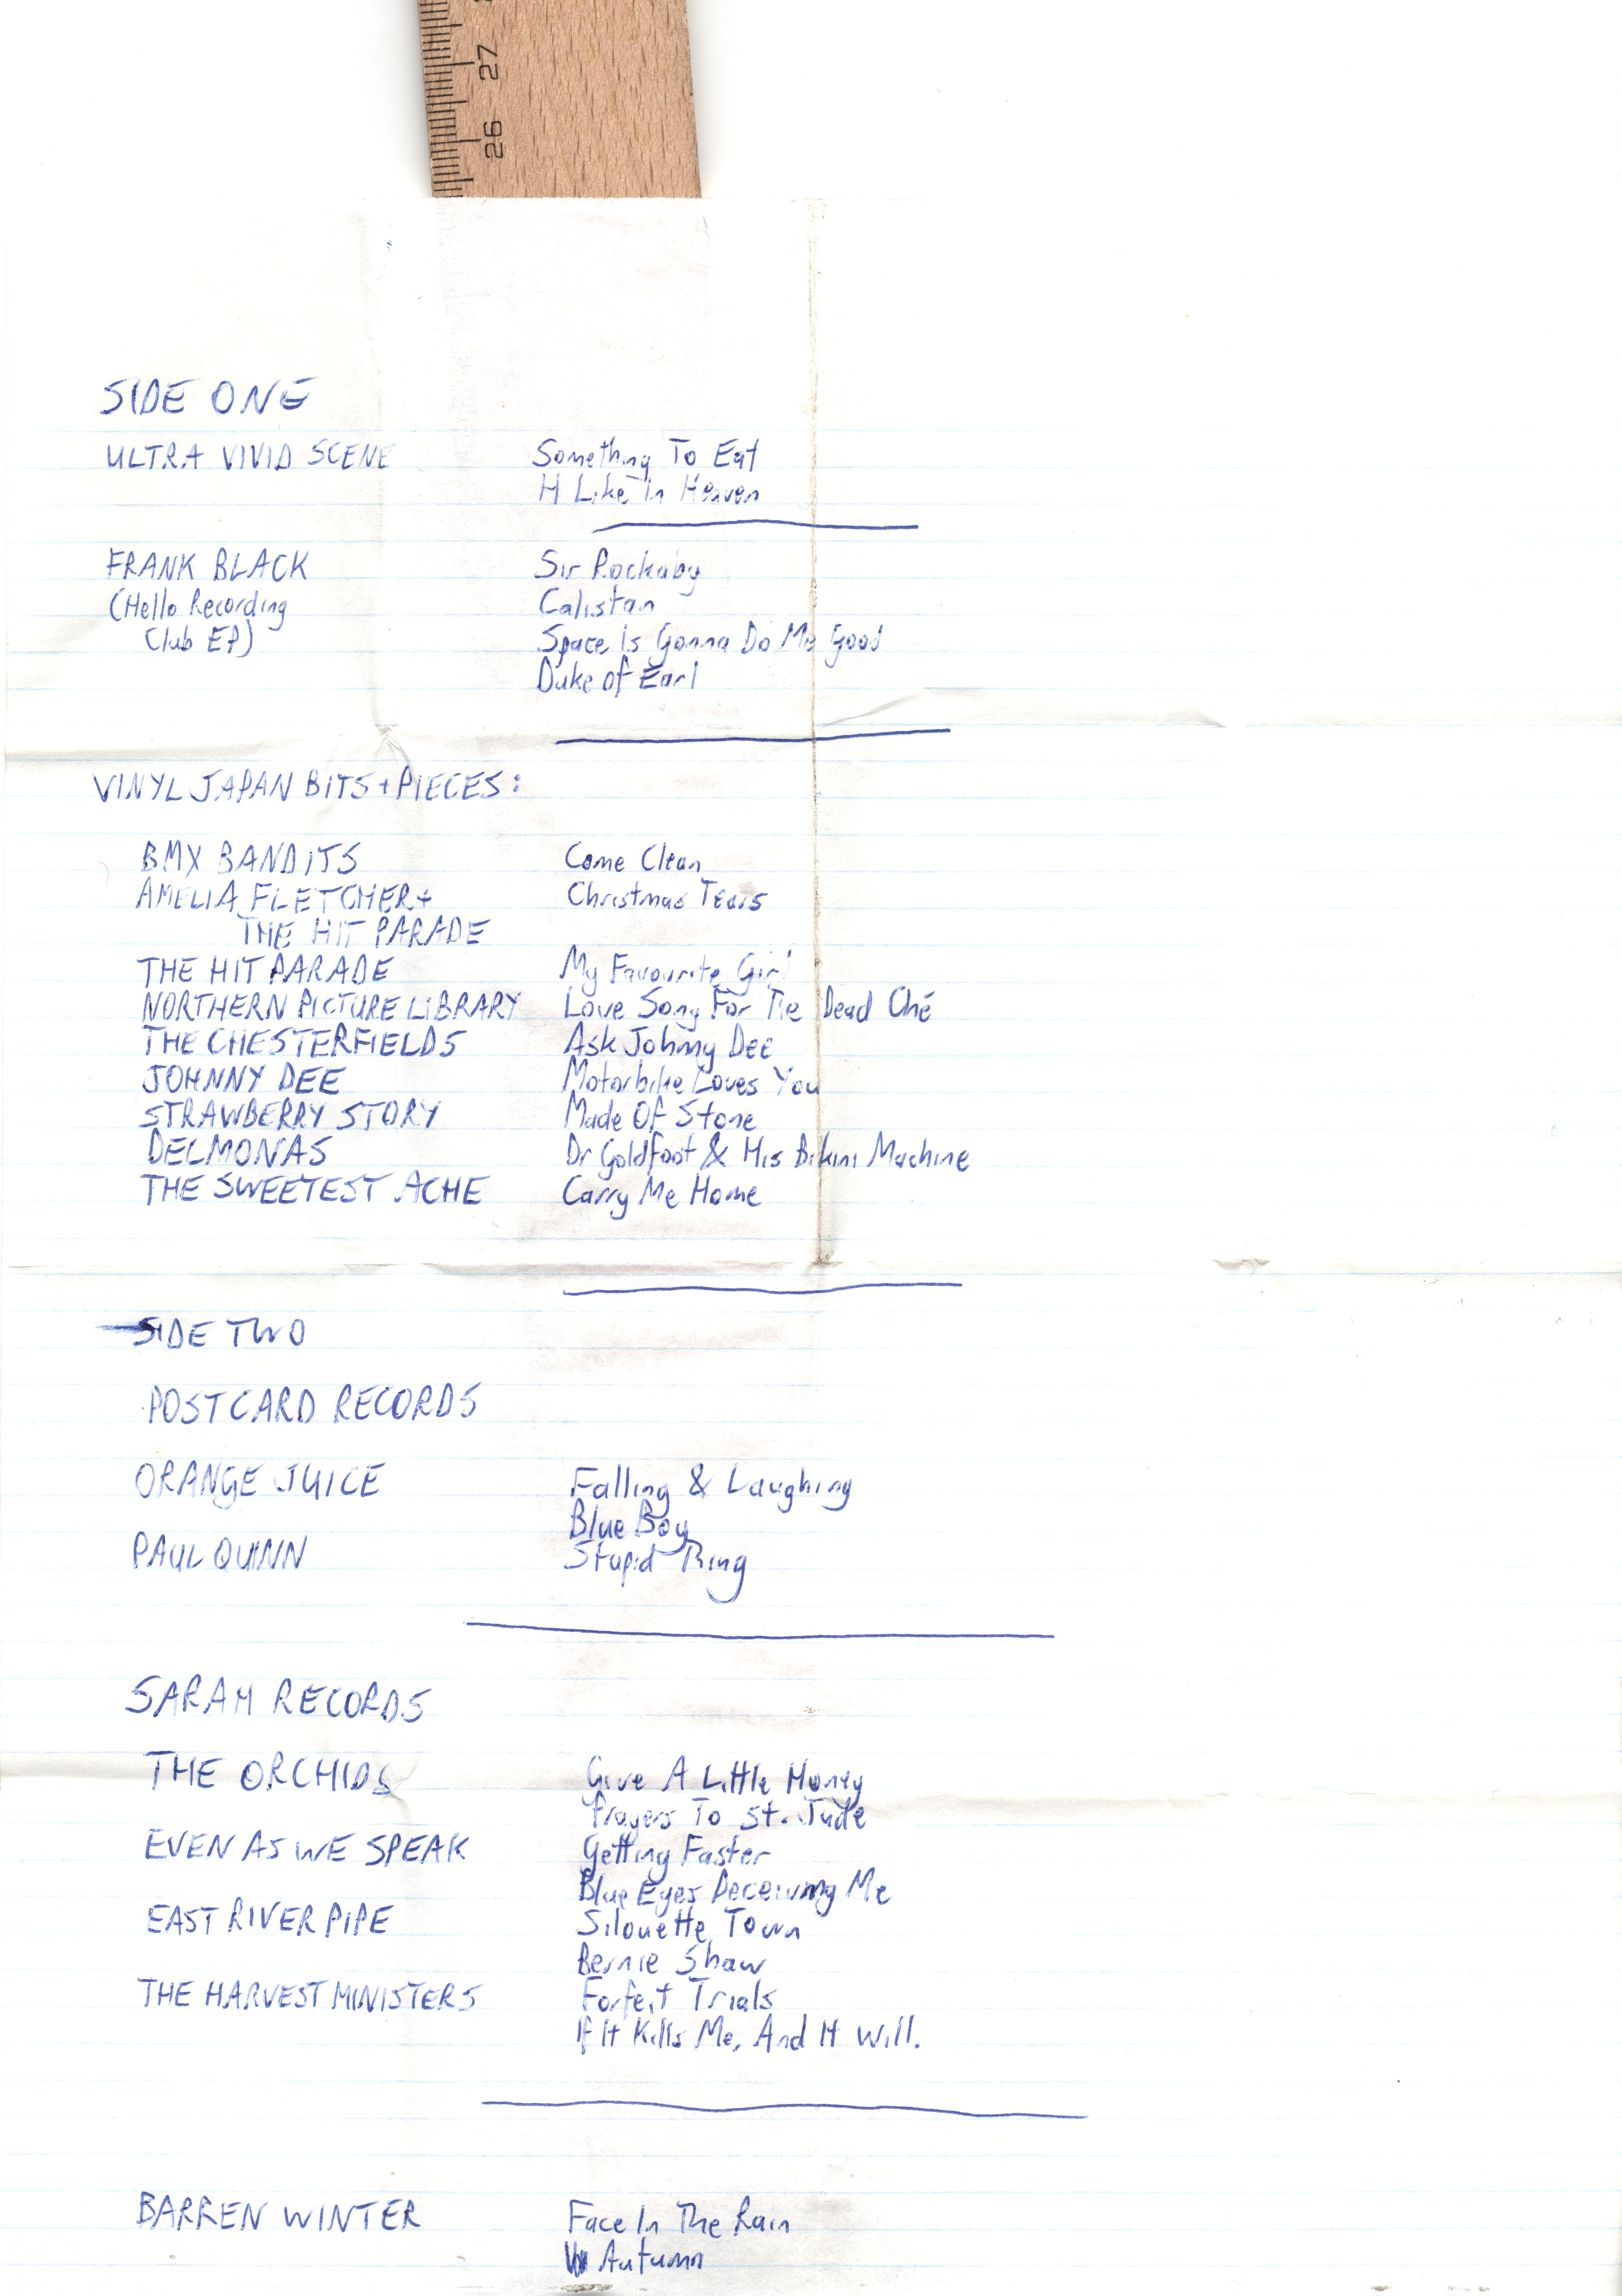 27
26
SIDE ONE
ULTRA VIVID SCENE Something To Eat
H Like In Heaven
FRANK BLACK Sir Rockaby
(Hello Recording Calistan
Club EP) Space Is Gonna Do Me Good
Duke of Earl
VINYL JAPAN BITS + PIECES:
BMX BANDITS Come Clean
AMELIA FLETCHER + Christmas Tears
THE HIT PARADE
THE HIT PARADE My Favourite Girl
NORTHERN PICTURE LIBRARY Love Song For The Dead Ché
THE CHESTERFIELDS Ask Johnny Dee
JOHNNY DEE Motorbike Loves You
STRAWBERRY STORY Made Of Stone
DELMONAS Dr Goldfoot & His Bikini Machine
THE SWEETEST ACHE Carry Me Home
SIDE TWO
POSTCARD RECORDS
ORANGE JUICE Falling & Laughing
Blue Boy
PAUL QUINN Stupid Thing
SARAH RECORDS
THE ORCHIDS Give A Little Honey
Prayers To St. Jude
EVEN AS WE SPEAK Getting Faster
Blue Eyes Deceiving Me
EAST RIVER PIPE Silouette Town
Bernie Shaw
THE HARVEST MINISTERS Forfeit Trials
If It Kills Me, And It Will.
BARREN WINTER Face In The Rain
Autumn